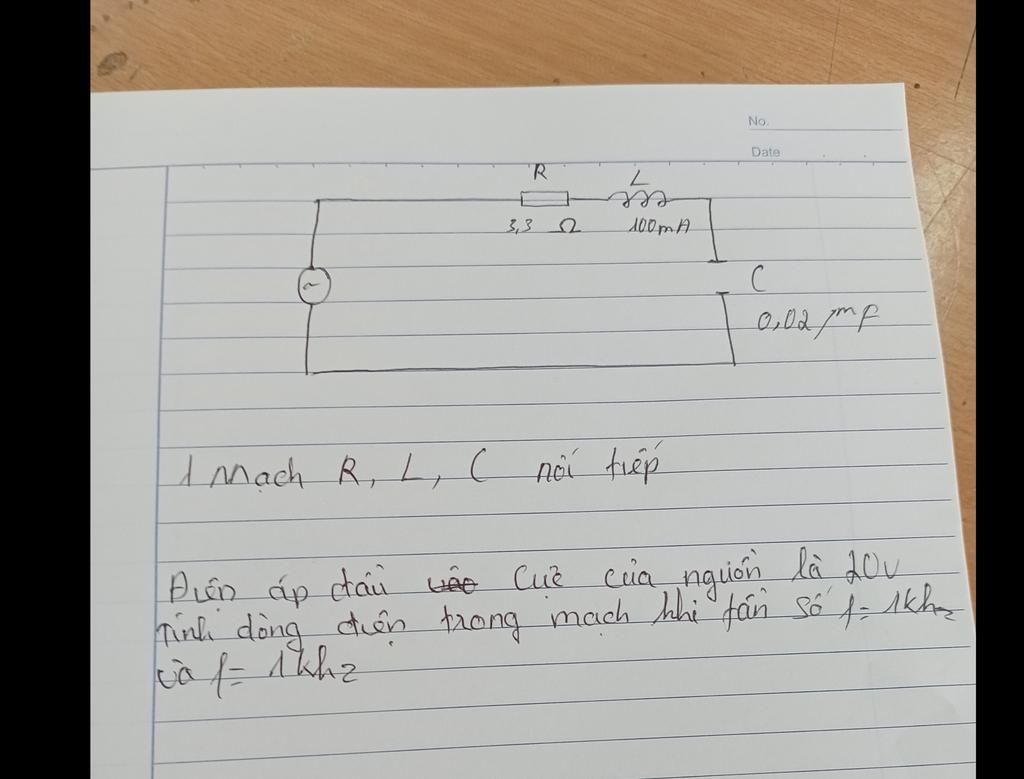 No.
Date
R
L
3,3 Ω
100mA
C
0,02 µmF
1 Mạch R, L, C nối tiếp
Điện áp đầu cực của nguồn là 20v
tính dòng điện trong mạch khi tần số f= 1khz
và f= 1khz